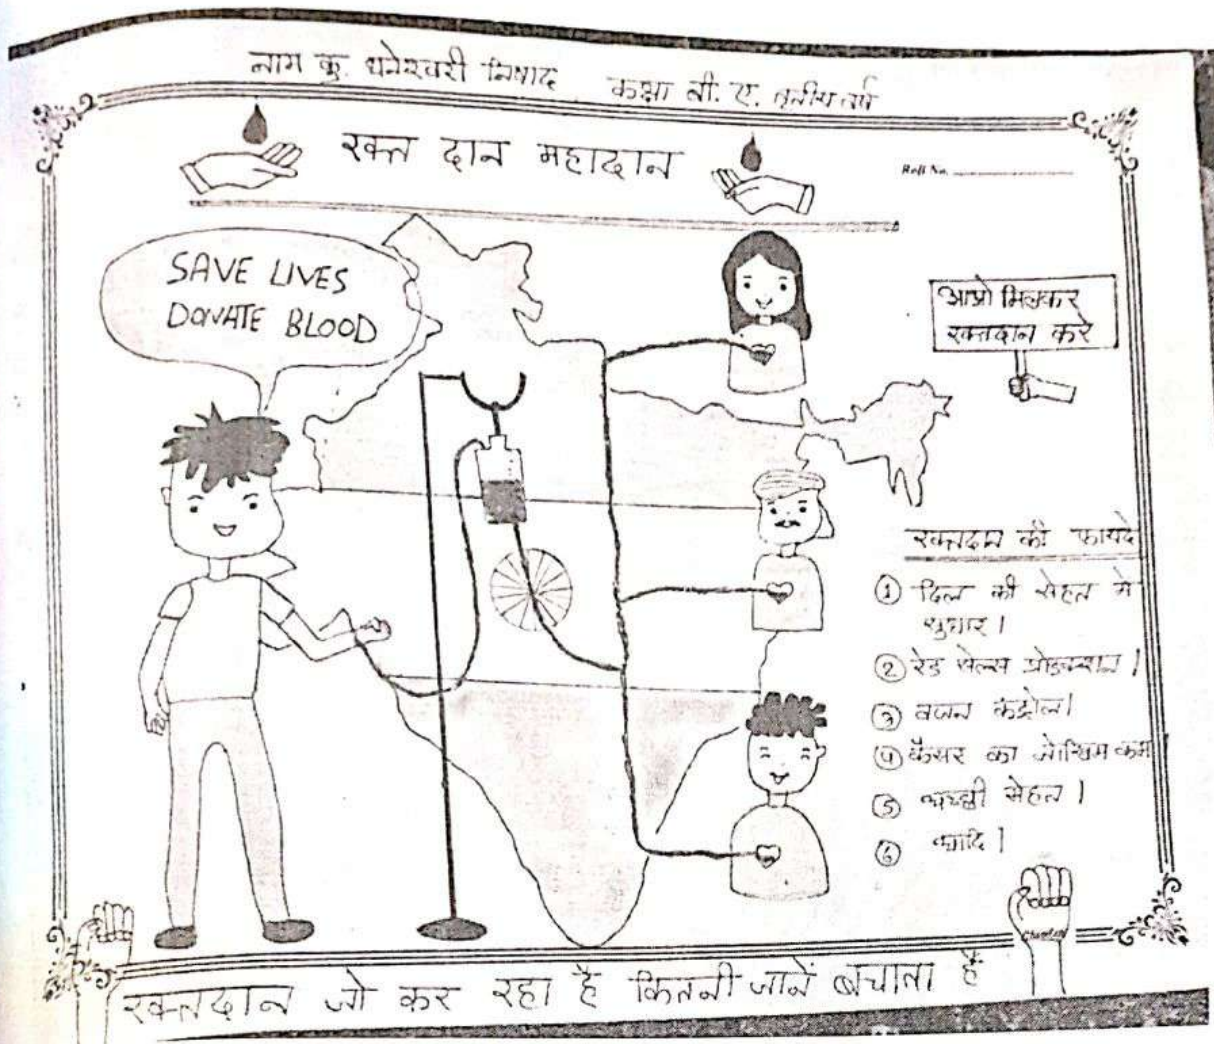 नाम कु. धनेश्वरी निषाद कक्षा बी. ए. तृतीय वर्ष
रक्त दान महादान
Roll No.
SAVE LIVES
DONATE BLOOD
आओ मिलकर
रक्तदान करे
रक्तदान की फायदे
① दिल की सेहत मे
सुधार।
② रेड सेल्स प्रोडक्शन।
③ वजन कंट्रोल।
④ कैंसर का जोखिम कम
⑤ अच्छी सेहत।
⑥ आदि।
रक्तदान जो कर रहा है कितनी जानें बचाता है